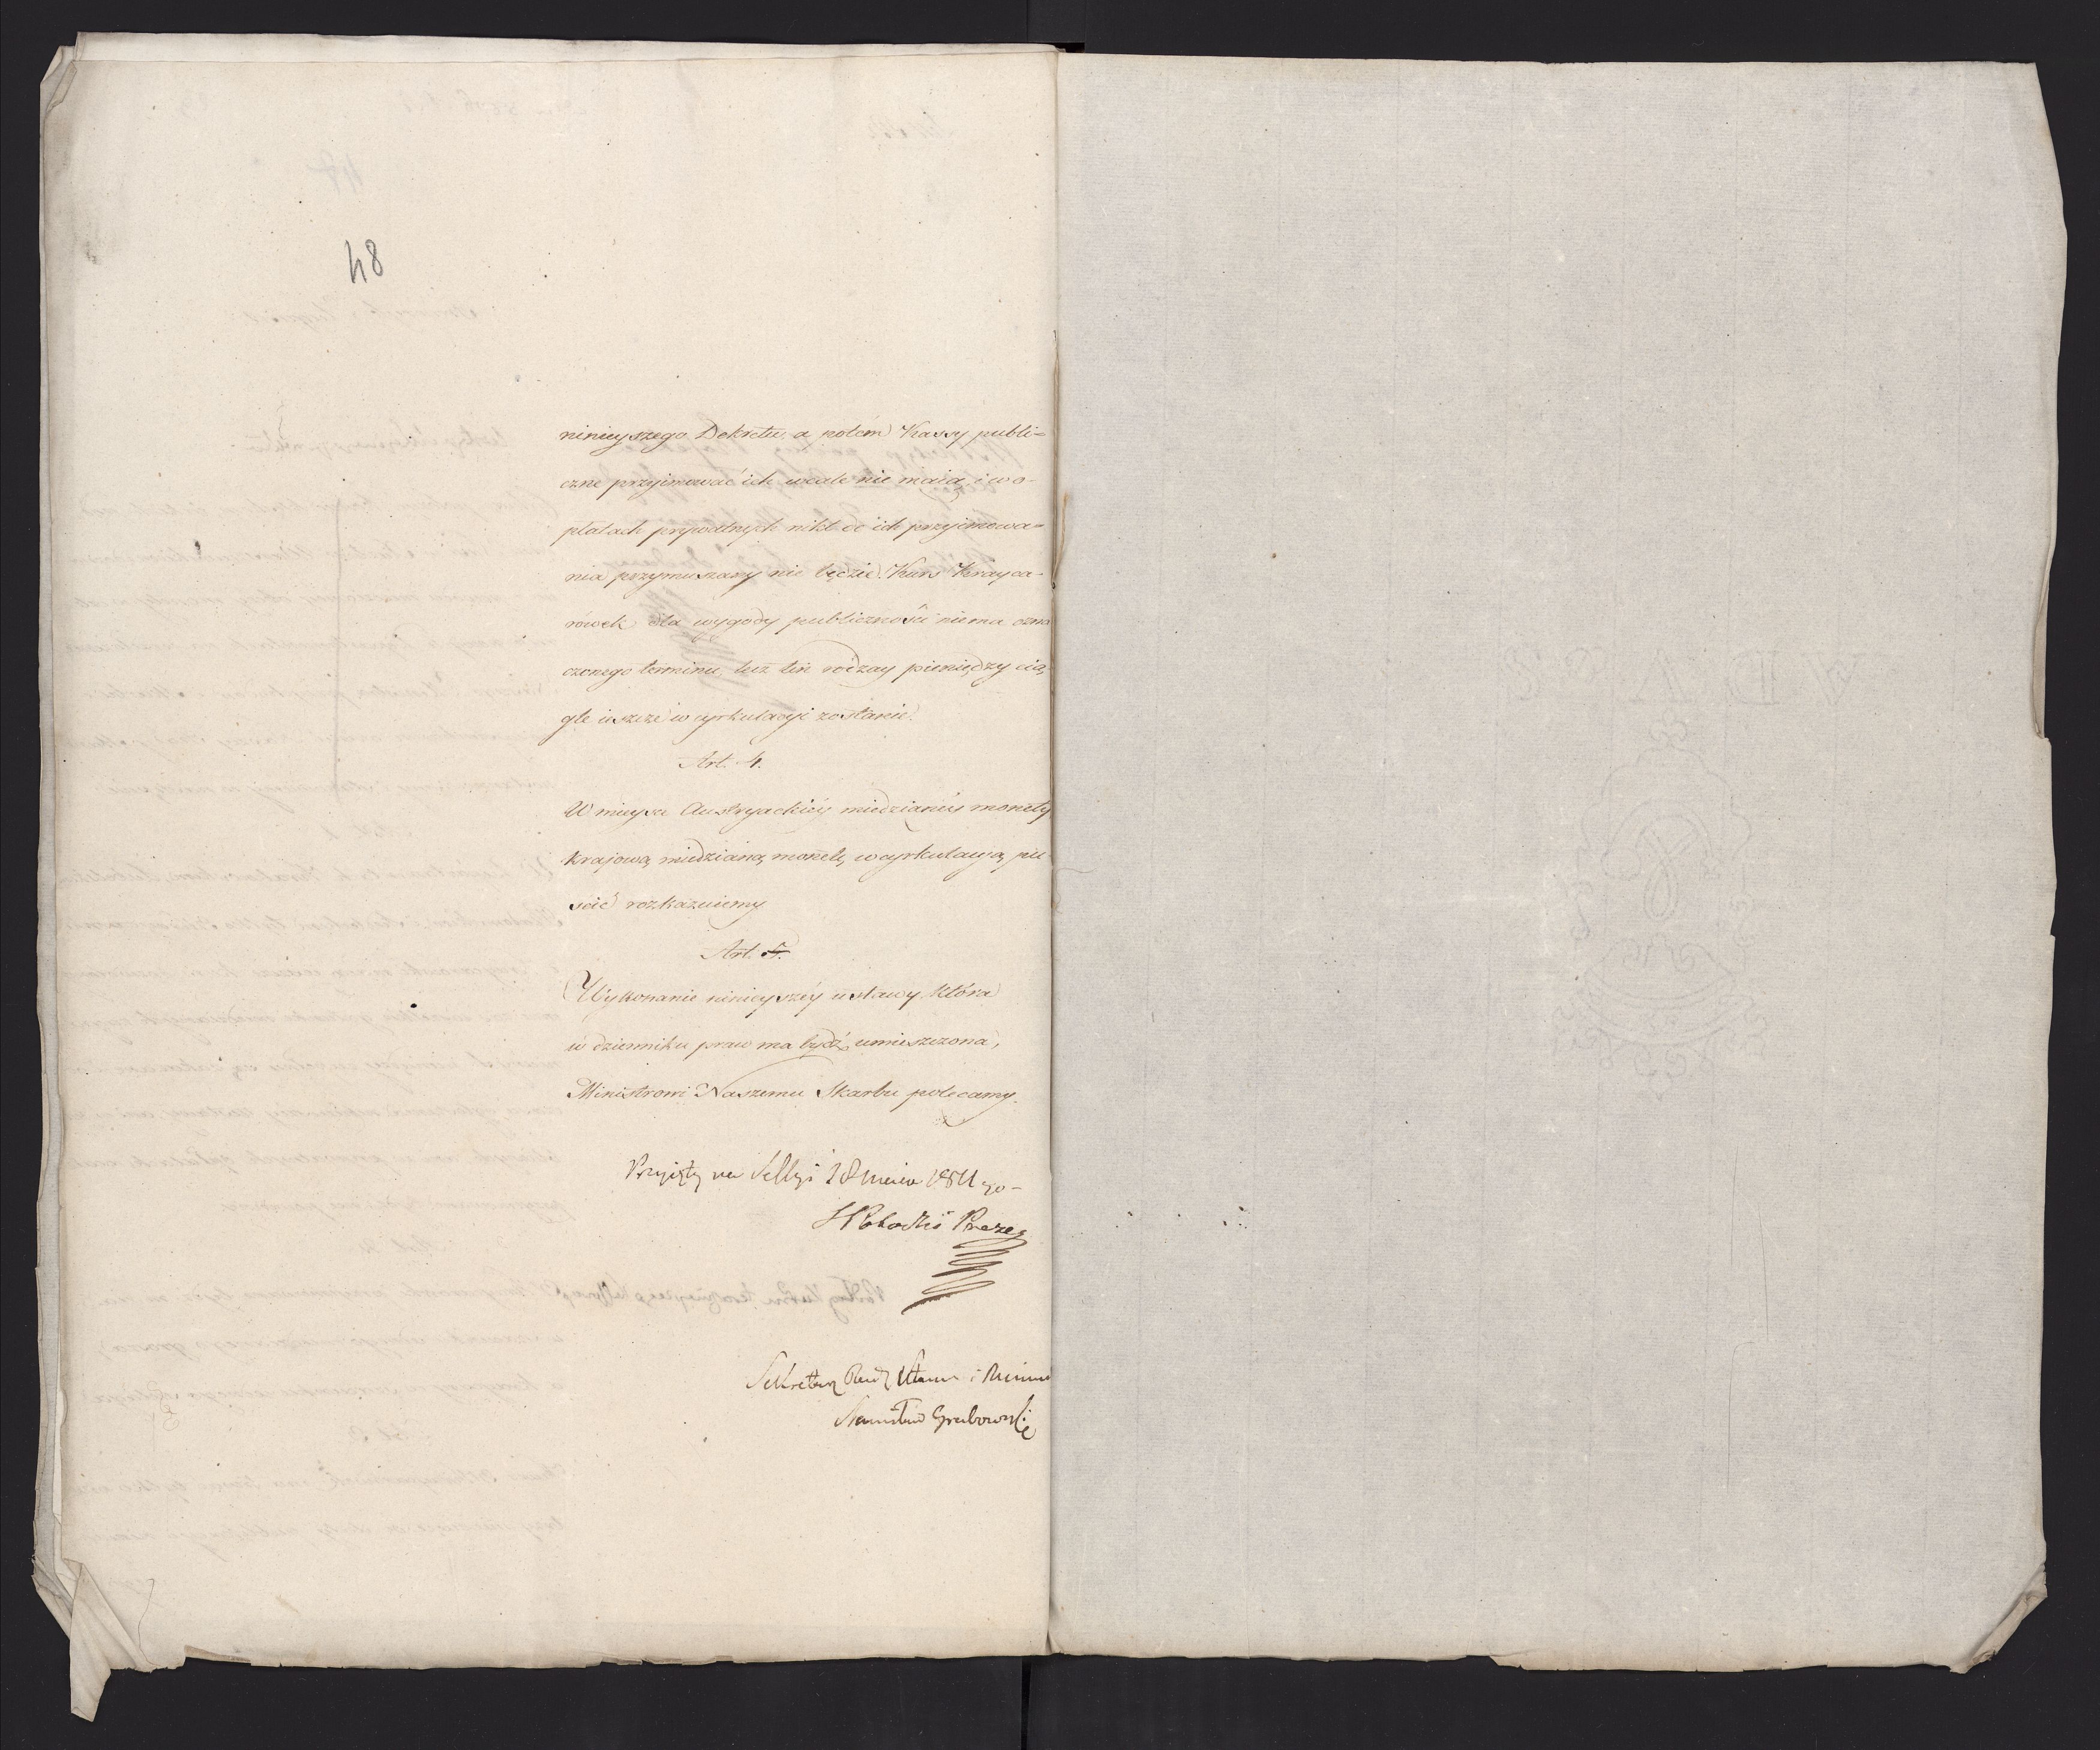 48
ninieyszego Dekretu, a potém Kassy publi=
czne przyimować ich wcale nie maią, i w o-
płatach prywatnych nikt do ich przyimowa=
nia przymuszany nie będzie. Kurs Krayca-
rówek dla wygody publiczności niema ozna
czonego terminu, lecz ten rodzay pieniędzy cią,
gle ieszcze w cyrkulacyi zostanie.
Art. 4.
W mieysce Austryackiéy miedzianéy monety
krajową miedzianą monetę w cyrkulacyą pu
scić rozkazuiemy
Art. 5.
Wykonanie ninieyszéy ustawy która
w dzienniku praw ma bydź umieszczona,
Ministrowi Naszemu Skarbu polecamy.
Przyięty na Sessyi 18 1811 go-
Potocki Prezes
Sekretarz Rady Stanu i
Stanisław Grabowski